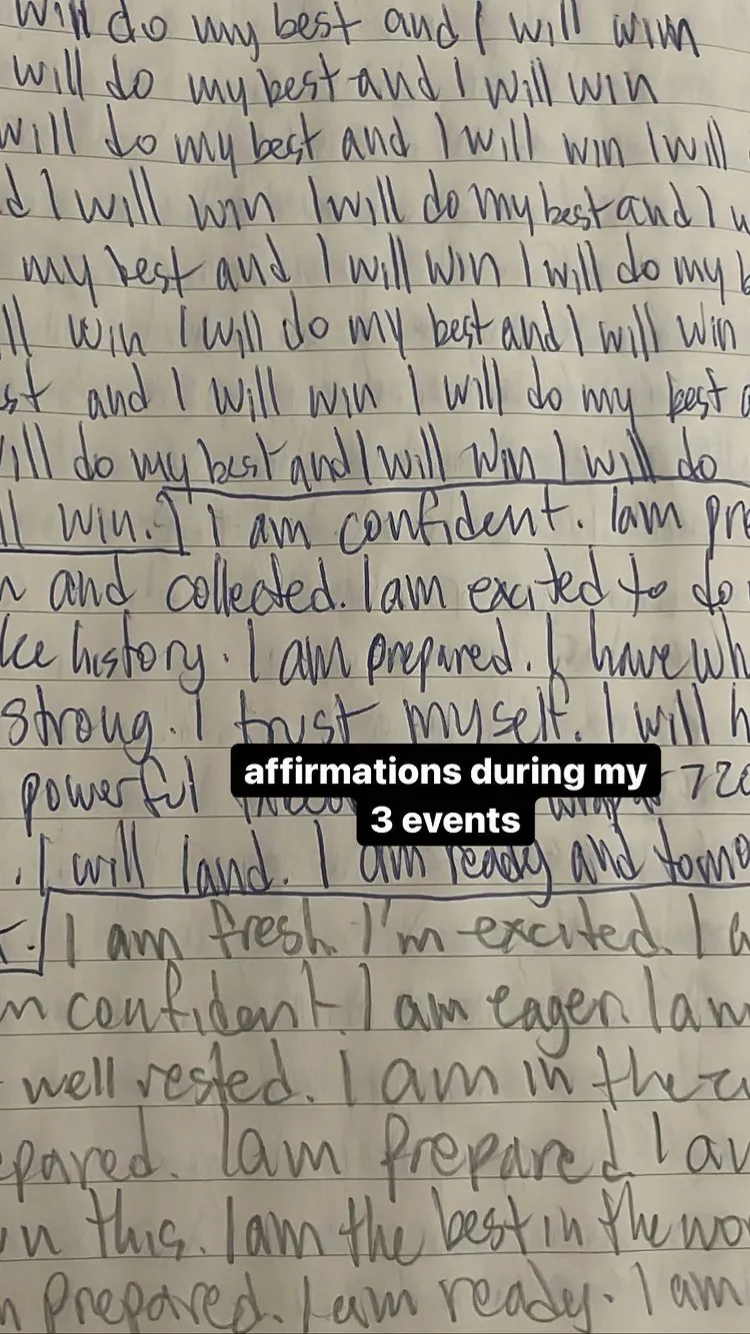 will do my best and I will win
will do my best and I will win
will do my best and I will win I will
d I will win I will do my best and I w
my best and I will win I will do my b
ll win I will do my best and I will win
st and I will win I will do my best a
will do my best and I will win I will do
ll win. I am confident. I am pre
n and collected. I am excited to do
ke history. I am prepared. I have wh
strong. I trust myself. I will h
affirmations during my
powerful 720
3 events
. I will land. I am ready and tomo
t. I am fresh. I'm excited. I a
m confident. I am eager. I am
well rested. I am in the
epared. I am prepared. I
n this. I am the best in the wo
m prepared. I am ready. I am